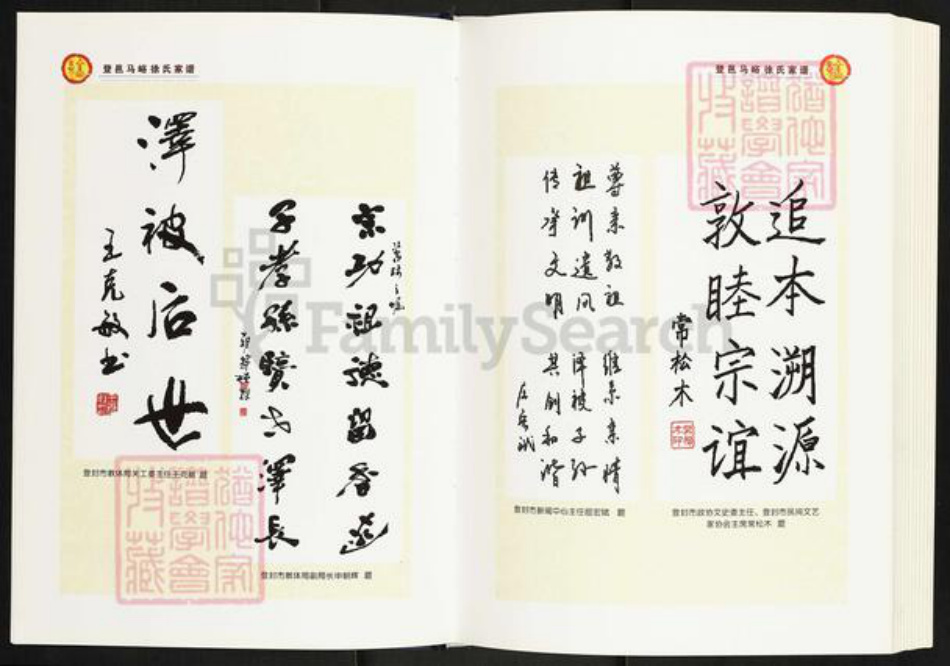 登邑马峪徐氏家谱
澤被后世
王克敏书
登封市教体局关工委主任王克敏 题
宗功祖德留香遠
子孝孫賢世澤長
登封市教体局副局长申朝辉 题
登邑马峪徐氏家谱
追本溯源
敦睦宗谊
常松木
登封市政协文史委主任、登封市民间文艺
家协会主席常松木 题
尊亲敬祖 维系亲情
祖训遗风 泽被子孙
传承文明 共创和谐
登封市新闻中心主任 题
FamilySearch
譜學會
收藏